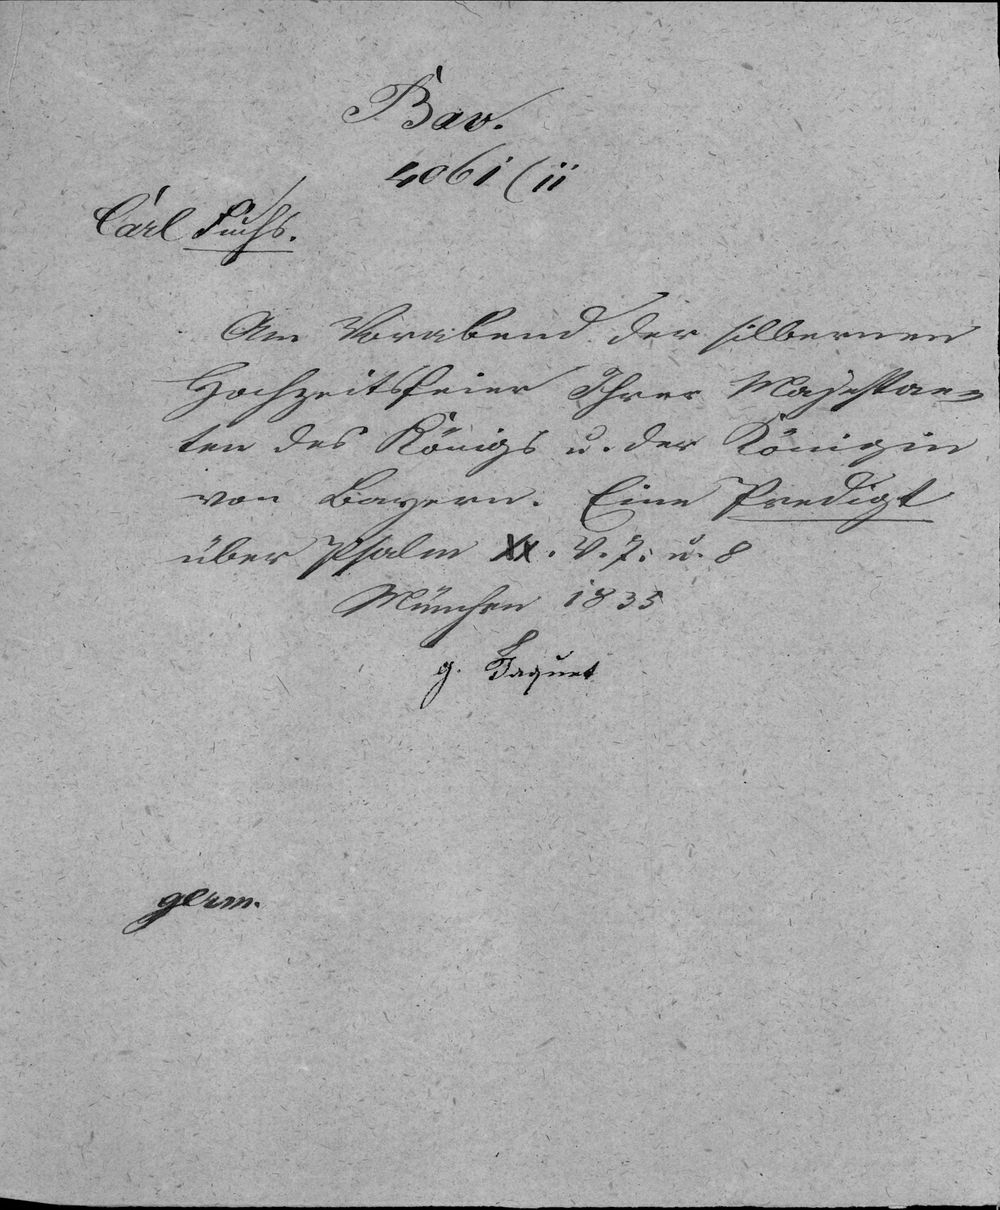 Bav.
4061 (ii
Carl Fuchs.
Am Vorabend der silbernen
Hochzeitsfeier Ihrer Majestae=
ten des Königs u. der Königin
von Bayern. Eine Predigt
über Psalm XX. V. 7. u. 8
München 1835
g. Jaquet
germ.